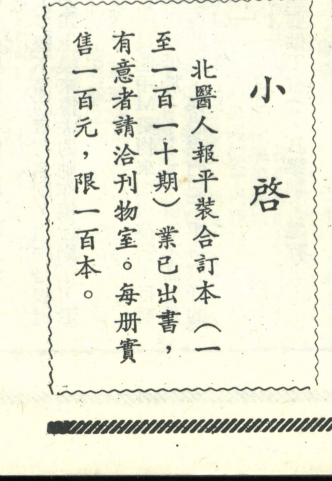 小啓
北醫人報平裝合訂本（一
至一百一十期）業已出書，
有意者請洽刊物室。每册實
售一百元，限一百本。